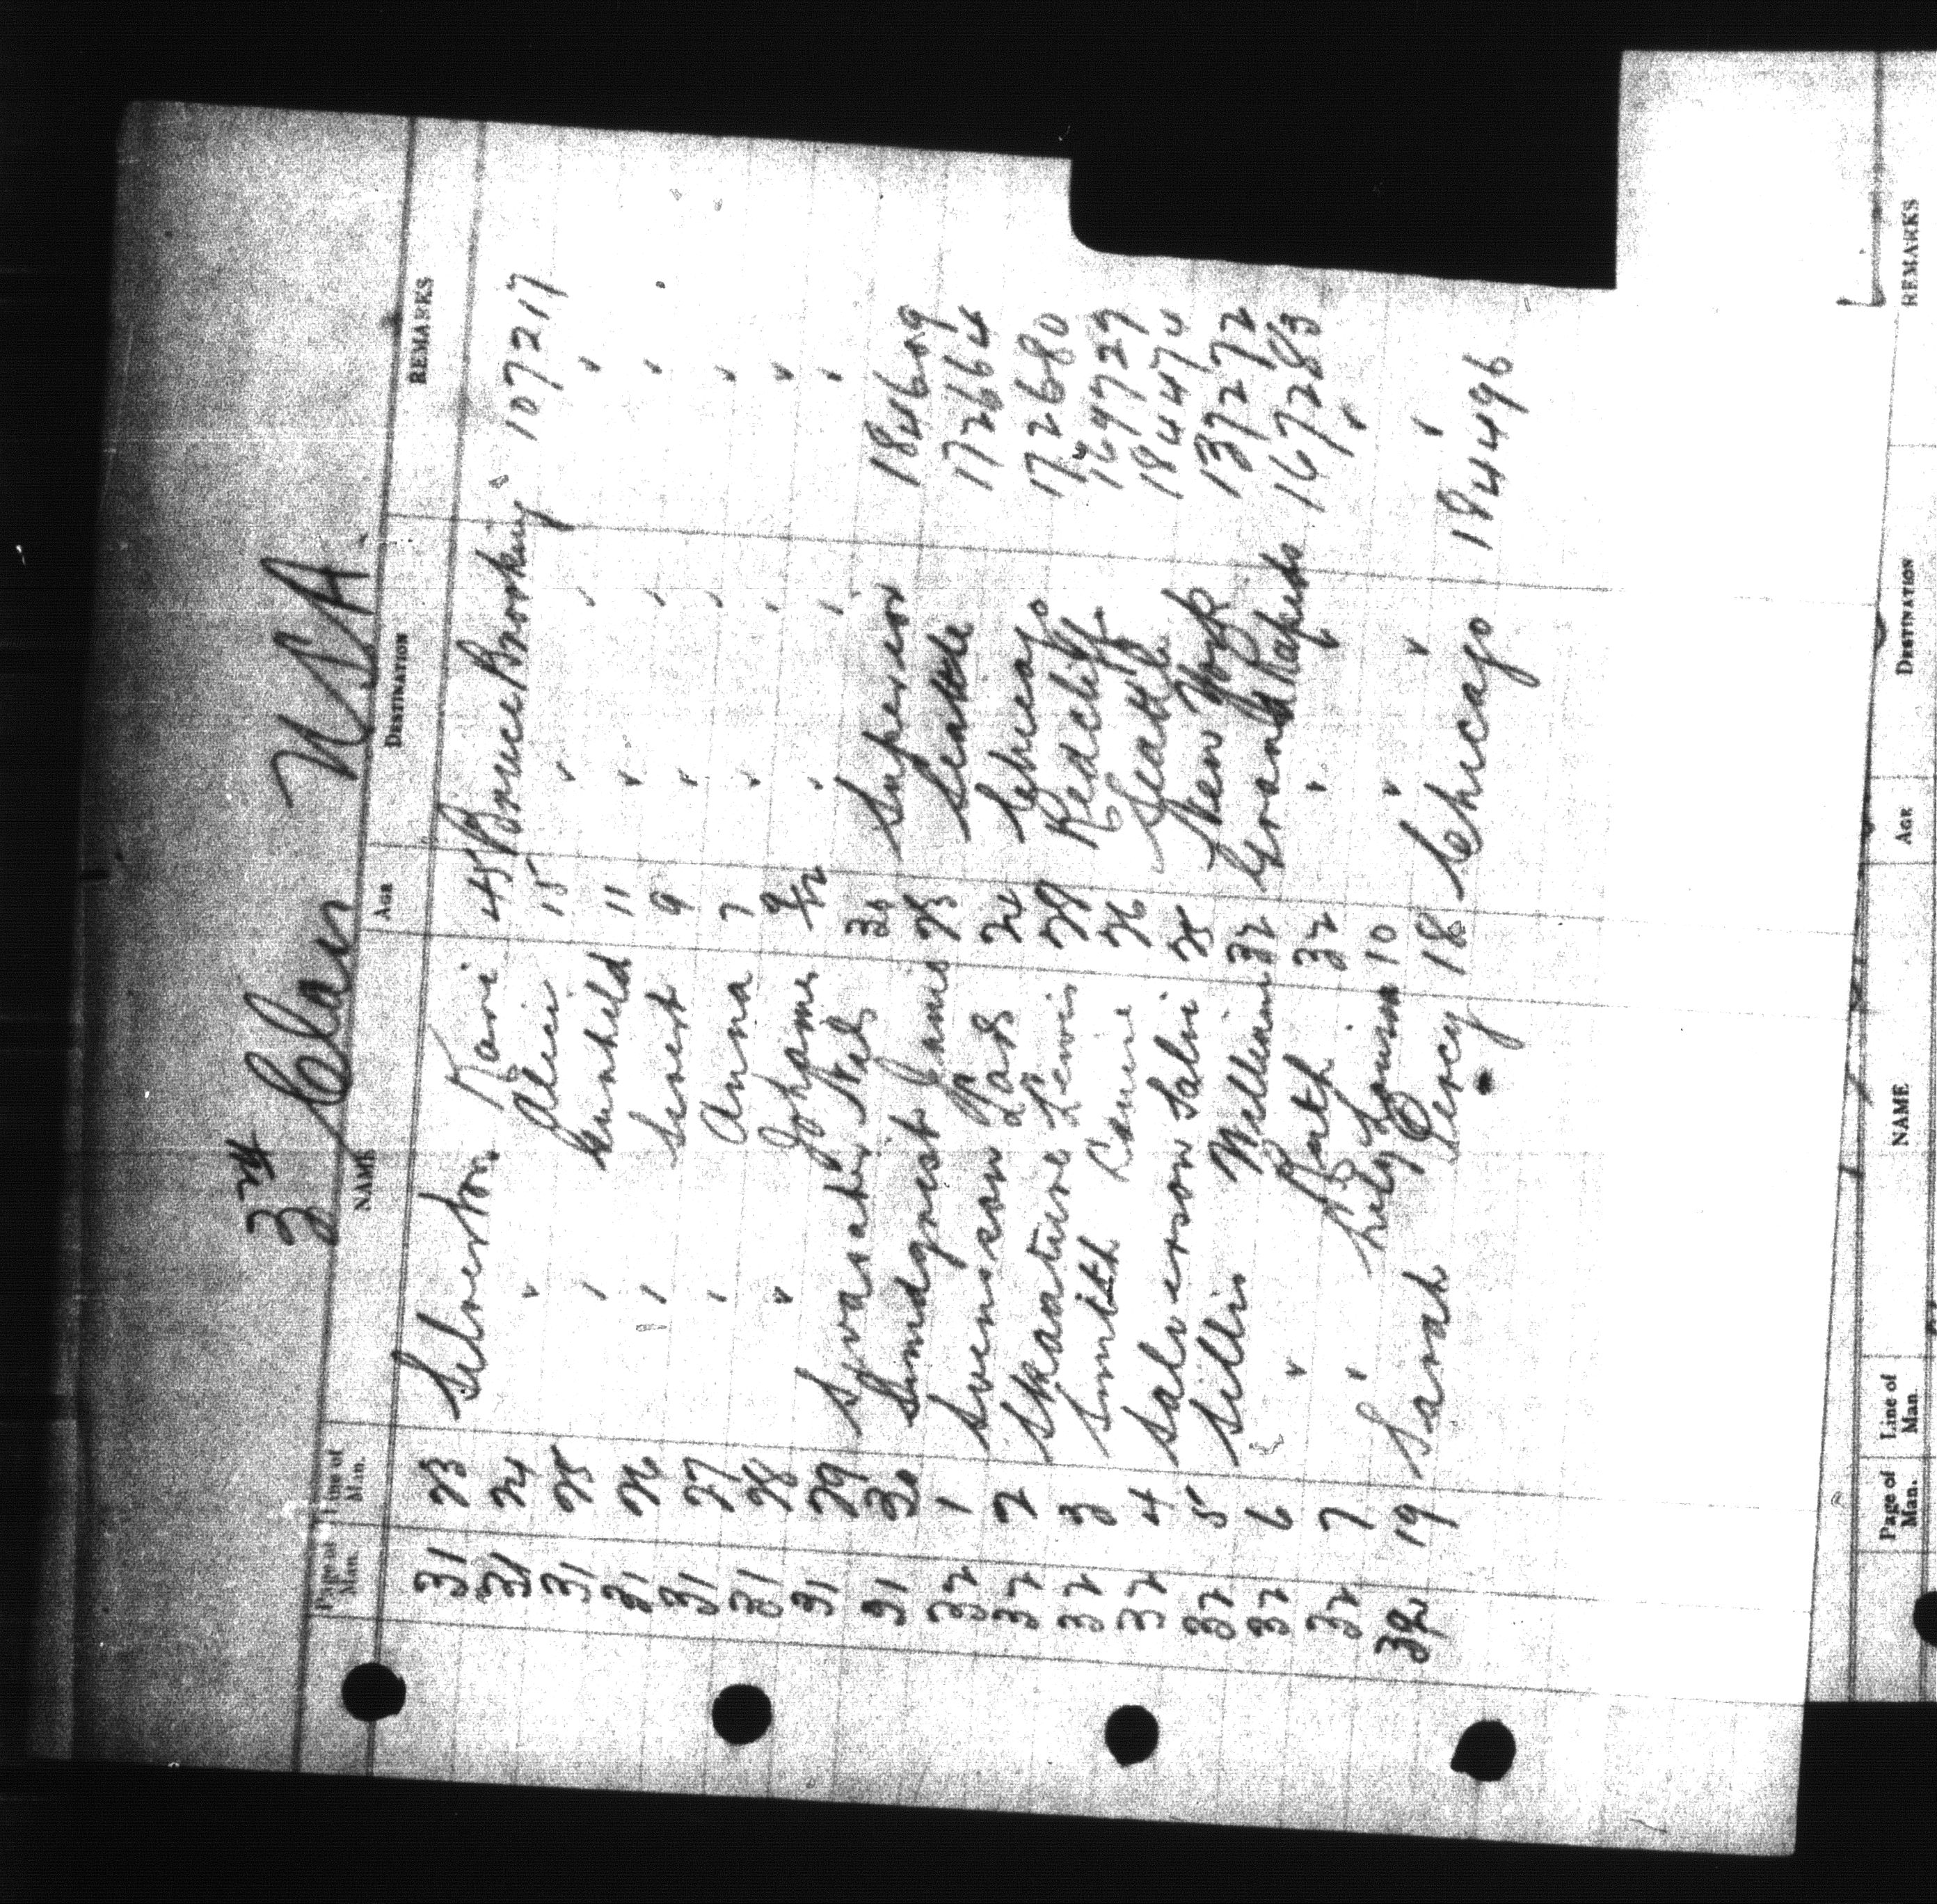 3rd Class U.S.A.
Page of Man. Line of Man. NAME AGE DESTINATION REMARKS
31 23 Silverton Kari 45 Bruce Brooking 107217
31 24 " Alice 15 " " "
31 25 " Gunhild 11 " " "
31 26 " Senert 9 " " "
31 27 " Anna 7 " " "
31 28 " Johame 9/12 " " "
31 29 Nels 30 Superior 184609
31 30 James 23 Seattle 172664
32 1 Svensson Lars 24 Chicago 172680
32 2 Lewis 29 Redcliffe 169729
32 3 Smith 26 Seattle 184474
32 4 Salverson Salvi 25 New York 137272
32 5 Sillis William 32 Grand Rapids 167283
32 6 " Ruth 32 " " "
32 7 " Lily Louisa 10 " " "
32 19 Sarah Percy 18 Chicago 184496
Page of Man. Line of Man NAME AGE DESTINATION REMARKS